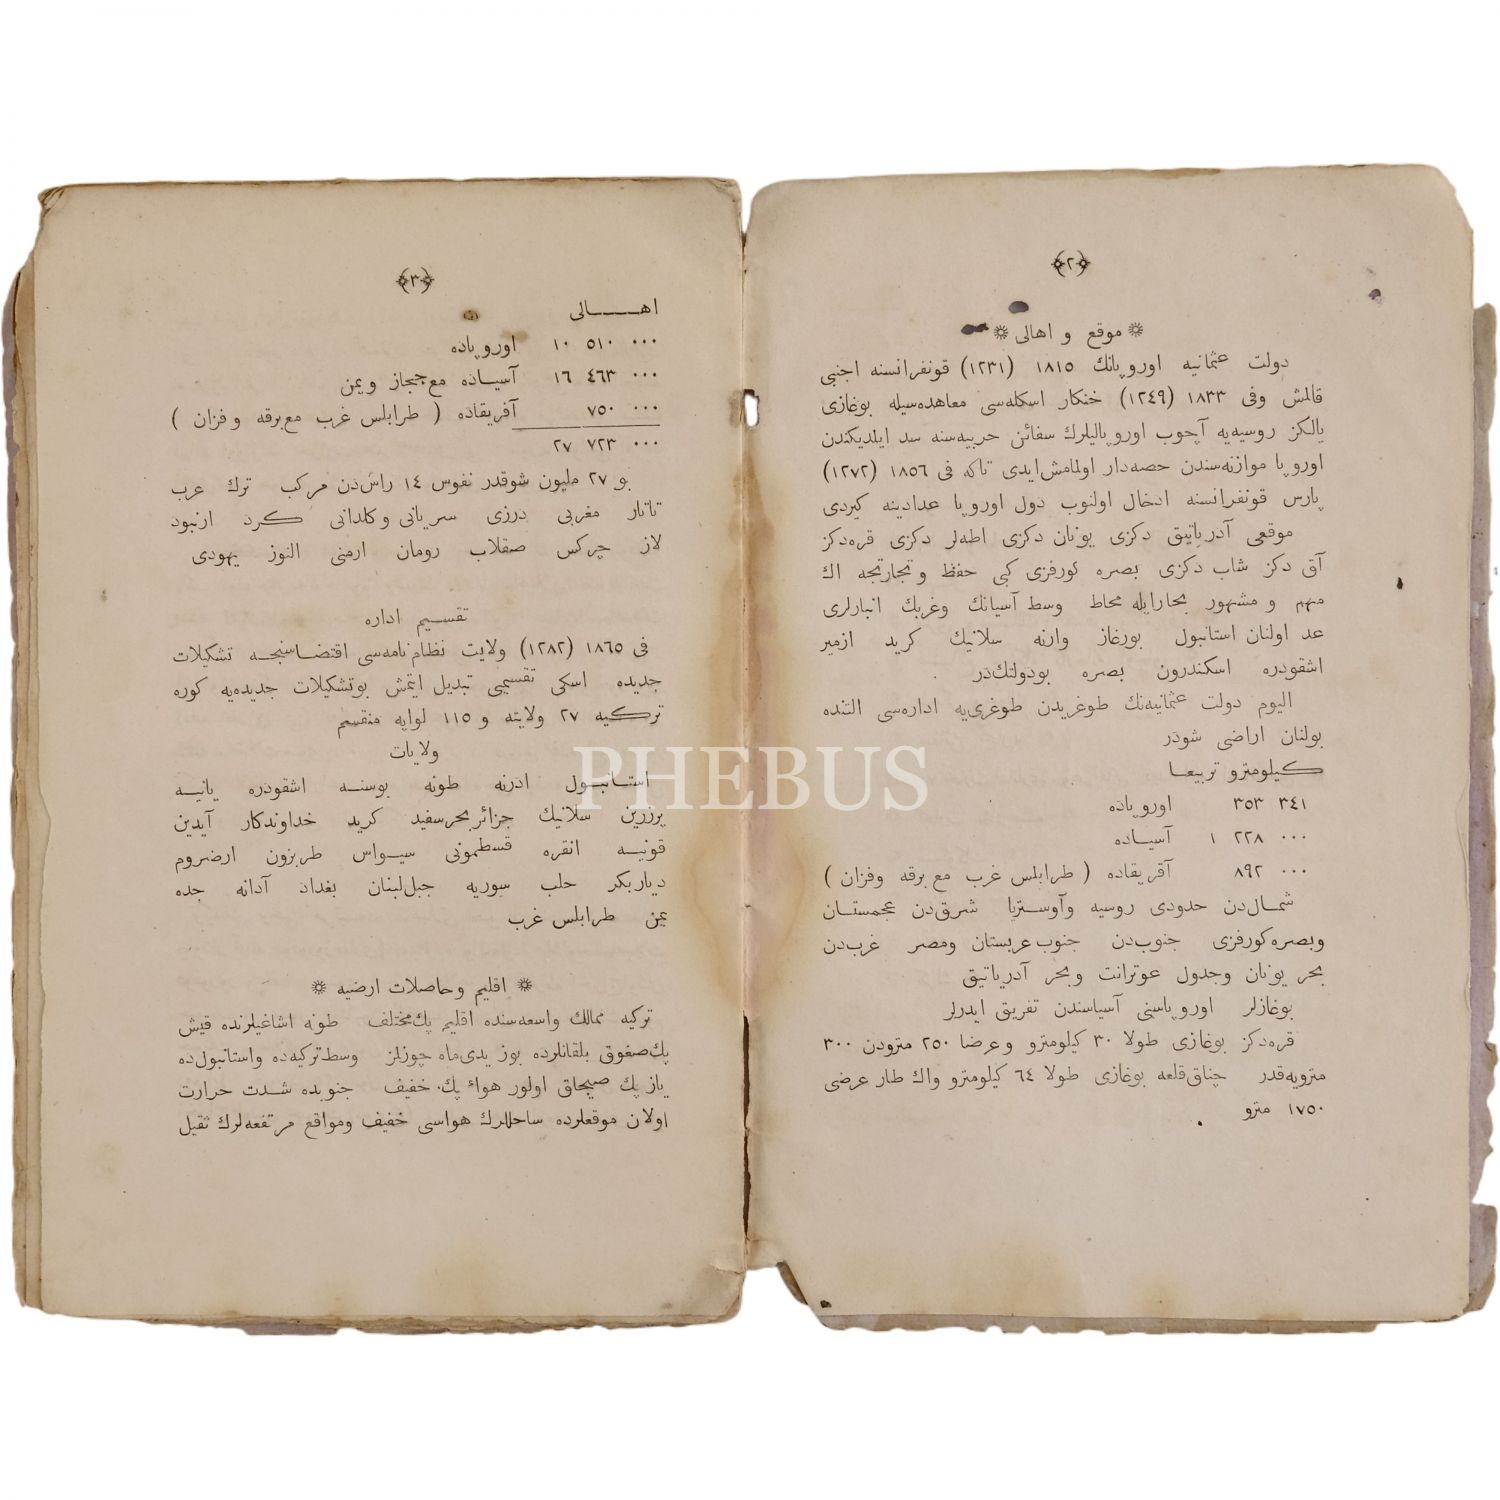 ﴿٢﴾
موقع و اهالی
دولت عثمانیه اوروپانك ١٨١٥ (١٢٣١) قونفرانسنه اجنبی
قالمش وفی ١٨٣٣ (١٢٤٩) خنكار اسكله‌سی معاهده‌سیله بوغازی
یالكز روسیه‌یه آچوب اوروپالیلرك سفائن حربیه‌سنه سد ایلدیكندن
اوروپا موازنه‌سندن حصه‌دار اولمامش‌ایدی تاكه فی ١٨٥٦ (١٢٧٢)
پارس قونفرانسنه ادخال اولنوب دول اوروپا عدادینه كیردی
موقعی آدریاتیق دكزی یونان دكزی اطه‌لر دكزی قره‌دكز
آق دكز شاب دكزی بصره كورفزی كبی حفظ و تجارتجه اك
مهم و مشهور بحارایله محاط وسط آسیانك وغربك انبارلری
عد اولنان استانبول بورغاز وارنه سلانیك كرید ازمیر
اشقودره اسكندرون بصره بودولتك‌در
الیوم دولت عثمانیه‌نك طوغریدن طوغری‌یه اداره‌سی التنده
بولنان اراضی شودر
كیلومترو تربیعا
٣٤١ ٣٥٣ اوروپاده
٠٠٠ ٢٢٨ ١ آسیاده
٠٠٠ ٨٩٢ آفریقاده ( طرابلس غرب مع برقه وفزان )
شمالدن حدودی روسیه وآوستریا شرق‌دن عجمستان
وبصره كورفزی جنوب‌دن جنوب عربستان ومصر غرب‌دن
بحر یونان وجدول عوترانت وبحر آدریاتیق
بوغازلر اوروپاسنی آسیاسندن تفریق ایدرلر
قره‌دكز بوغازی طولا ٣٠ كیلومترو وعرضا ٢٥٠ مترودن ٣٠٠
مترویه‌قدر چناق‌قلعه بوغازی طولا ٦٤ كیلومترو واك طار عرضی
١٧٥٠ مترو
﴿٣﴾
اهـالی
٠٠٠ ٥١٠ ١٠ اوروپاده
٠٠٠ ٤٦٣ ١٦ آسیاده مع حجاز ویمن
٠٠٠ ٧٥٠ آفریقاده ( طرابلس غرب مع برقه وفزان )
٠٠٠ ٧٢٣ ٢٧
بو ٢٧ ملیون شوقدر نفوس ١٤ راس‌دن مركب ترك عرب
تاتار مغربی درزی سریانی وكلدانی كرد ارنبود
لاز چركس صقلاب رومان ارمنی النوز یهودی
تقسیم اداره
فی ١٨٦٥ (١٢٨٢) ولایت نظام‌نامه‌سی اقتضاسنجه تشكیلات
جدیده اسكی تقسیمی تبدیل ایتمش بوتشكیلات جدیده‌یه كوره
تركیه ٢٧ ولایته و ١١٥ لوایه منقسم
ولایات
استانبول ادرنه طونه بوسنه اشقودره یانیه
پرزرین سلانیك جزائربحرسفید كرید خداوندكار آیدین
قونیه انقره قسطمونی سیواس طربزون ارضروم
دیاربكر حلب سوریه جبل‌لبنان بغداد آدانه جده
یمن طرابلس غرب
اقلیم وحاصلات ارضیه
تركیه ممالك واسعه‌سنده اقلیم پك‌مختلف طونه اشاغیلرنده قیش
پك‌صغوق بلقانلرده بوز یدی‌ماه چوزلز وسط‌تركیه‌ده واستانبول‌ده
یاز پك صیجاق اولور هواء پك خفیف جنوبده شدت حرارت
اولان موقعلرده ساحللرك هواسی خفیف ومواقع مرتفعه‌لرك ثقیل
PHEBUS